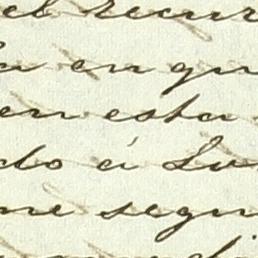 el recur
la en qu
en esta
do á Lu
me segu